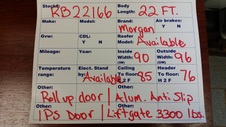 Stock#: RB22166 Body Length: 22 FT.
Make: Model: Brand: Morgan Air brakes? Y N
Gvw: CDL: Y N Model: Reefer Available
Mileage: Year: Inside Width: 90 Outside Width: 96
Temperature range: Elect. Stand by: Available Ceiling To floor: 85 Header To floor: 76
Other: Roll up door / Alum. Anti Slip
Other: 1 PS Door / Liftgate 3300 lbs.